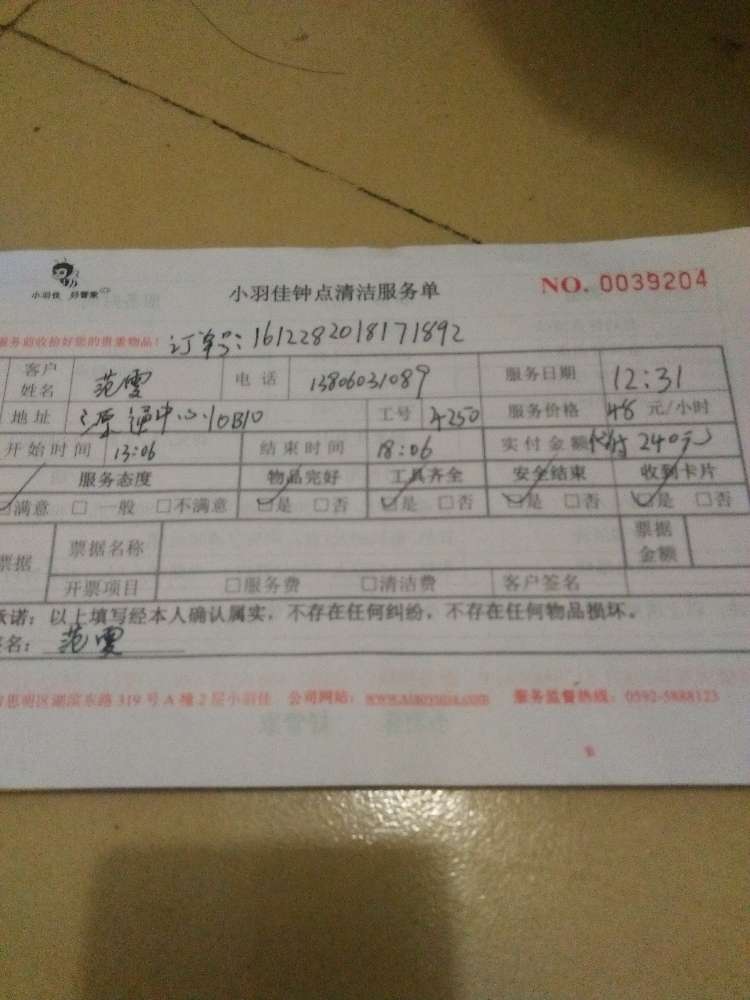 小羽佳 好管家
小羽佳钟点清洁服务单
NO. 0039204
服务前收拾好您的贵重物品!
订单号:161228201817 1892
客户姓名 范雪 电话 13806031089 服务日期 12:31
地址 中心10B10 工号 4250 服务价格 48 元/小时
开始时间 13:06 结束时间 18:06 实付金额 代付 240元
服务态度 物品完好 工具齐全 安全结束 收到卡片
满意 □ 一般 □不满意 □是 □否 □是 □否 □是 □否 □是 □否
票据 票据名称 票据金额
开票项目 □服务费 □清洁费 客户签名
承诺:以上填写经本人确认属实,不存在任何纠纷,不存在任何物品损坏。
签名:范雪
思明区湖滨东路 319 号 A 幢 2 层小羽佳 公司网站: 服务监督热线:0592-5888123